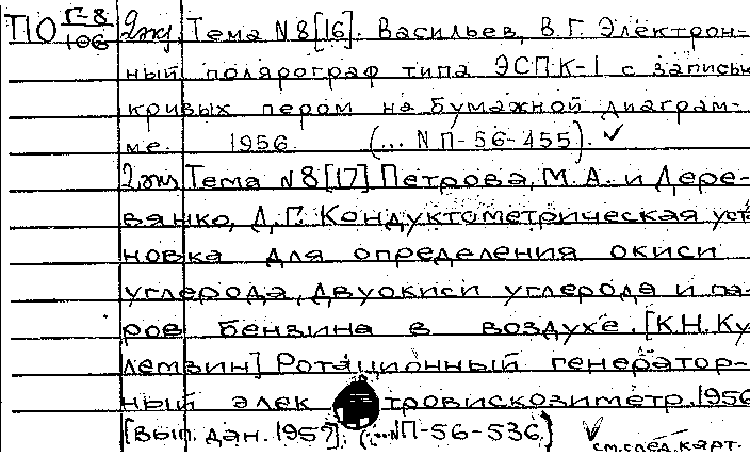 ПО Г-8/106 2экз Тема N8[16]. Васильев, В.Г. Электрон-
ный полярограф типа ЭСПК-1 с записью
кривых пером на бумажной диаграм-
ме. 1956. (... N П-56-455). ✓
2экз Тема N8[17] Петрова, М.А. и Дере-
вянко, Д.Г. Кондуктометрическая уста
новка для определения окиси
углерода, двуокиси углерода и па-
ров бензина в воздухе. [К.Н. Ку
лемзин] Ротационный генератор-
ный элек тровискозиметр. 1956
[Вып. дан. 1957]. (...NП-56-536) ✓
см. след. карт.